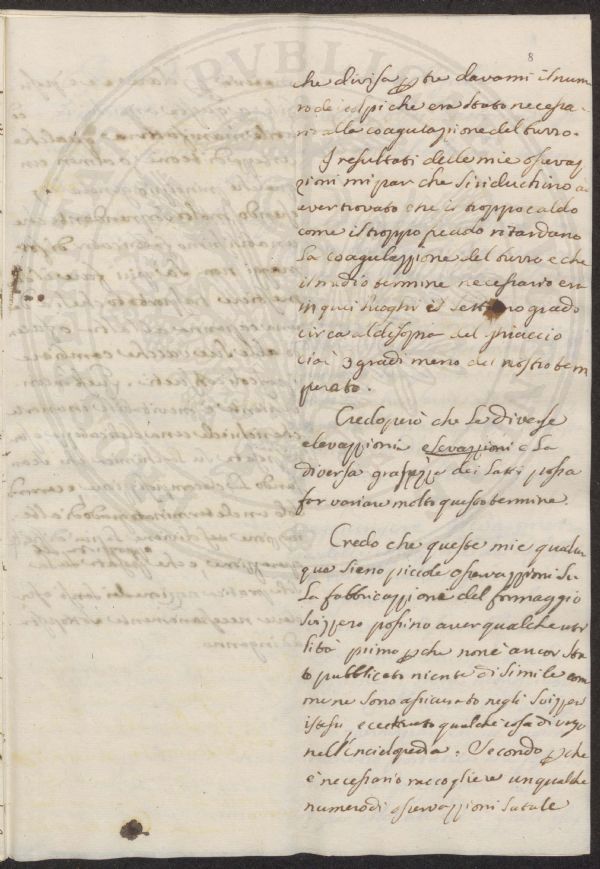 8
che divisa per tre davami il nume
ro dei colpi che era stato necessa
rio alla coagulazione del burro.
I resultati delle mie osservaz
zioni mi par che si riduchino a
aver trovato che il troppo caldo
come il troppo freddo ritardano
la coagulazzione del burro e che
il medio termine necessario era
in quei luoghi il settimo grado
circa al disopra del ghiaccio
cioè 3 gradi meno del nostro tem
perato.
Credo però che la diverse
elevazzioni elevazzioni e la
diversa grassezza dei latti possa
far variare molto questo termine.
Credo che queste mie qualun
que sieno piccole osservazzioni su
la fabbricazzione del formaggio
svizzero possino aver qualche uti
lità primo perche non è ancor sta
to pubblicato niente di simile com
me ne sono assicurato negli svizzeri
istessi eccettuato qualche cosa di vago
nell'Enciclopedia; Secondo perche
è necessario raccogliere un qualche
numero di osservazzioni su tale